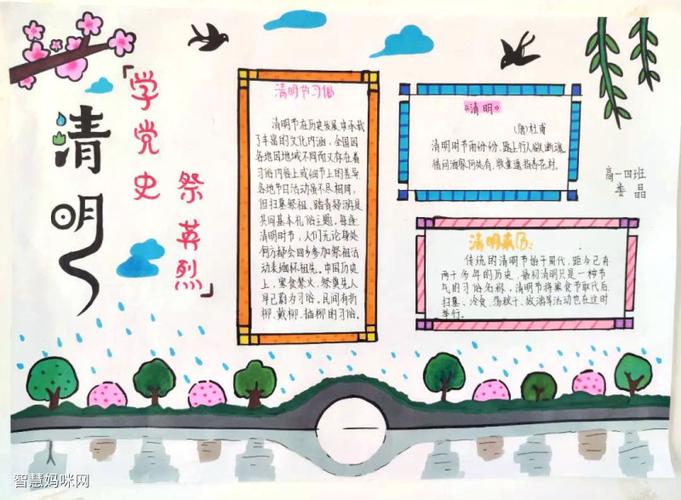 清明
「学党史
祭英烈」
清明节习俗
清明节在历史发展中承载
了丰富的文化内涵，全国因
各地因地域不同而又存在着
习俗内容上或细节上的差异
各地节日活动虽不尽相同，
但扫墓祭祖、踏青郊游是
共同基本礼俗主题，每逢
清明时节，人们无论身处
何方都会回乡参加祭祖活
动表缅怀祖先。中国历史
上，寒食禁火，祭奠先人
早已蔚为习俗。民间有折
柳、戴柳、插柳的习俗。
《清明》
(唐)杜甫
清明时节雨纷纷，路上行人欲断魂
借问酒家何处有，牧童遥指杏花村。
高一四班
李晶
清明来历：
传统的清明节始于周代，距今已有
两千多年的历史，最初清明只是一种节
气的习俗名称，清明节将寒食节取代后
扫墓、冷食、荡秋千、放酒等活动也在这时
举行。
智慧妈咪网